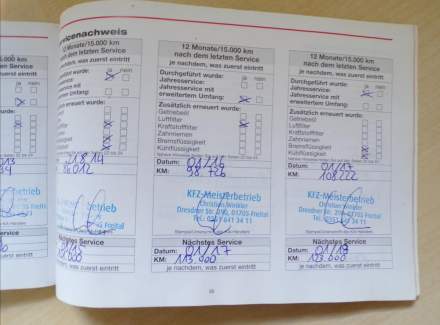 5.000 km
zten Service
uerst eintritt
icenachweis
12 Monate/15.000 km
nach dem letzten Service
je nachdem, was zuerst eintritt
ja nein
wurde:
service mit
Umfang:
erneuert wurde:
21.8.14
86012
betrieb
Nächstes Service
was zuerst eintritt
12 Monate/15.000 km
nach dem letzten Service
je nachdem, was zuerst eintritt
Durchgeführt wurde: ja nein
Jahresservice:
Jahresservice mit
erweitertem Umfang:
Zusätzlich erneuert wurde:
Getriebeöl
Luftfilter
Kraftstofffilter
Zahnriemen
Bremsflüssigkeit
Kühlflüssigkeit
Datum: 01/16
KM: 98 726
KFZ-Meisterbetrieb
Christian Winkler
Dresdner Str. 290, 01705 Freital
Nächstes Service
Datum: 01/17
KM: 113 000
je nachdem, was zuerst eintritt
12 Monate/15.000 km
nach dem letzten Service
je nachdem, was zuerst eintritt
Durchgeführt wurde: ja nein
Jahresservice:
Jahresservice mit
erweitertem Umfang:
Zusätzlich erneuert wurde:
Getriebeöl
Luftfilter
Kraftstofffilter
Zahnriemen
Bremsflüssigkeit
Kühlflüssigkeit
Datum: 01/17
KM: 108222
KFZ-Meisterbetrieb
Christian Winkler
Dresdner Str. 290, 01705 Freital
Tel.: 0351 641 34 11
Nächstes Service
Datum: 01/18
KM: 123 000
je nachdem, was zuerst eintritt